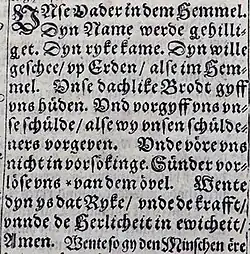 VNse Vader in dem Hemmel.
Dyn Name werde gehilli-
get. Dyn ryke kame. Dyn wille
geschee/ vp Erden/ alse im Hem-
mel. Vnse dachlike Brodt gyff
vns hüden. Vnd vorgyff vns vn-
se schülde/ alse wy vnsen schülde-
ners vorgeven. Vnde vöre vns
nicht in vorsökinge. Sünder vor-
löse vns * van dem övel. Wente
dyn ys dat Ryke/ vnde de kraffe/
vnnde de Herlicheit in ewicheit/
Amen. Wente so gy den Minschen ere